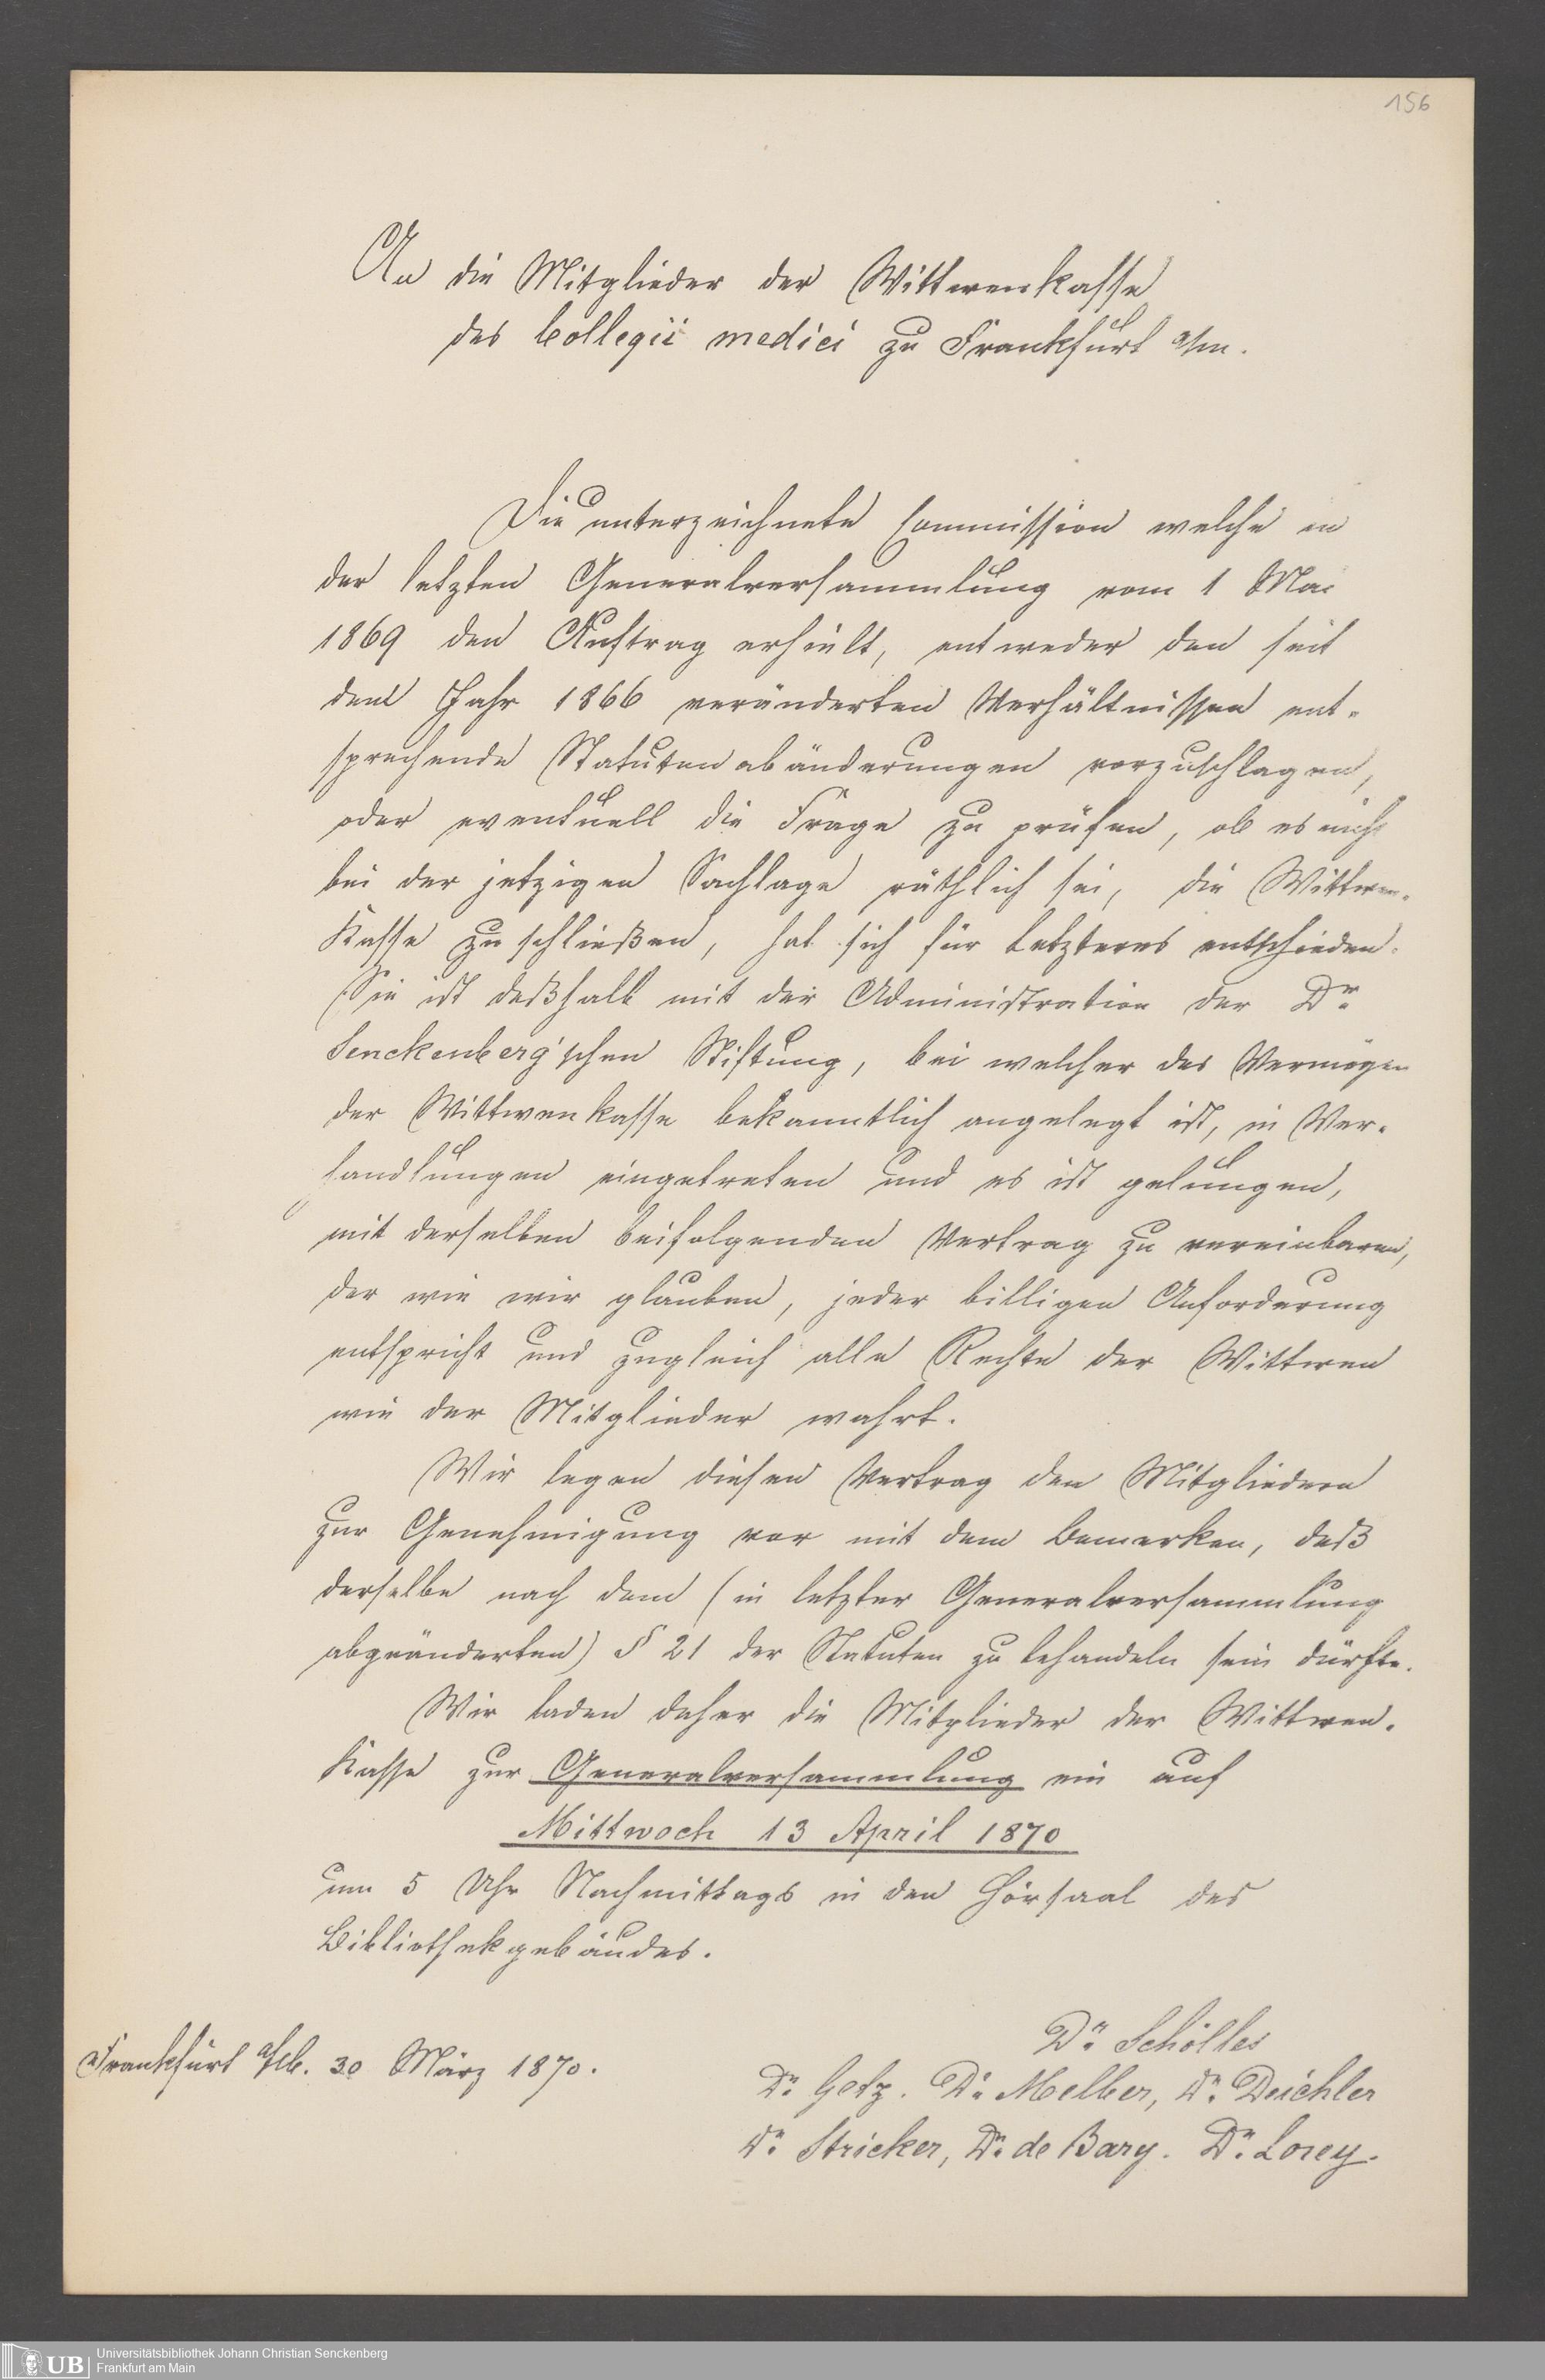 156
An die Mitglieder der Wittwenkasse
des Collegii medici zu Frankfurt a/m.
Die unterzeichnete Commission welche in
der letzten Generalversammlung vom 1 Mai
1869 den Auftrag erhielt, entweder den seit
dem Jahr 1866 veränderten Verhältnissen ent-
sprechende Statutenabänderungen vorzuschlagen,
oder eventuell die Frage zu prüfen, ob es nicht
bei der jetzigen Sachlage räthlich sei, die Wittwen-
Kasse zu schließen, hat sich für Letzteres entschieden.
Sie ist deßhalb mit der Administration der Dr.
Senckenberg'schen Stiftung, bei welcher das Vermögen
der Wittwenkasse bekanntlich angelegt ist, in Ver-
handlungen eingetreten und es ist gelungen,
mit derselben beifolgenden Vertrag zu vereinbaren,
der wie wir glauben, jeder billigen Anforderung
entspricht und zugleich alle Rechte der Wittwen
wie der Mitglieder wahrt.
Wir legen diesen Vertrag den Mitgliedern
zur Genehmigung vor mit dem Bemerken, daß
derselbe nach dem (in letzter Generalversammlung
abgeänderten) § 21 der Statuten zu behandeln sein dürfte.
Wir laden daher die Mitglieder der Wittwen-
Kasse zur Generalversammlung ein auf
Mittwoch 13 April 1870
um 5 Uhr Nachmittags in den Hörsaal des
Bibliothekgebäudes.
Frankfurt a/M. 30 März 1870.
Dr. Schölles
Dr. Getz. Dr. Melber, Dr. Deichler
Dr. Stricker, Dr. de Bary. Dr. Lorey.
UB Universitätsbibliothek Johann Christian Senckenberg
Frankfurt am Main